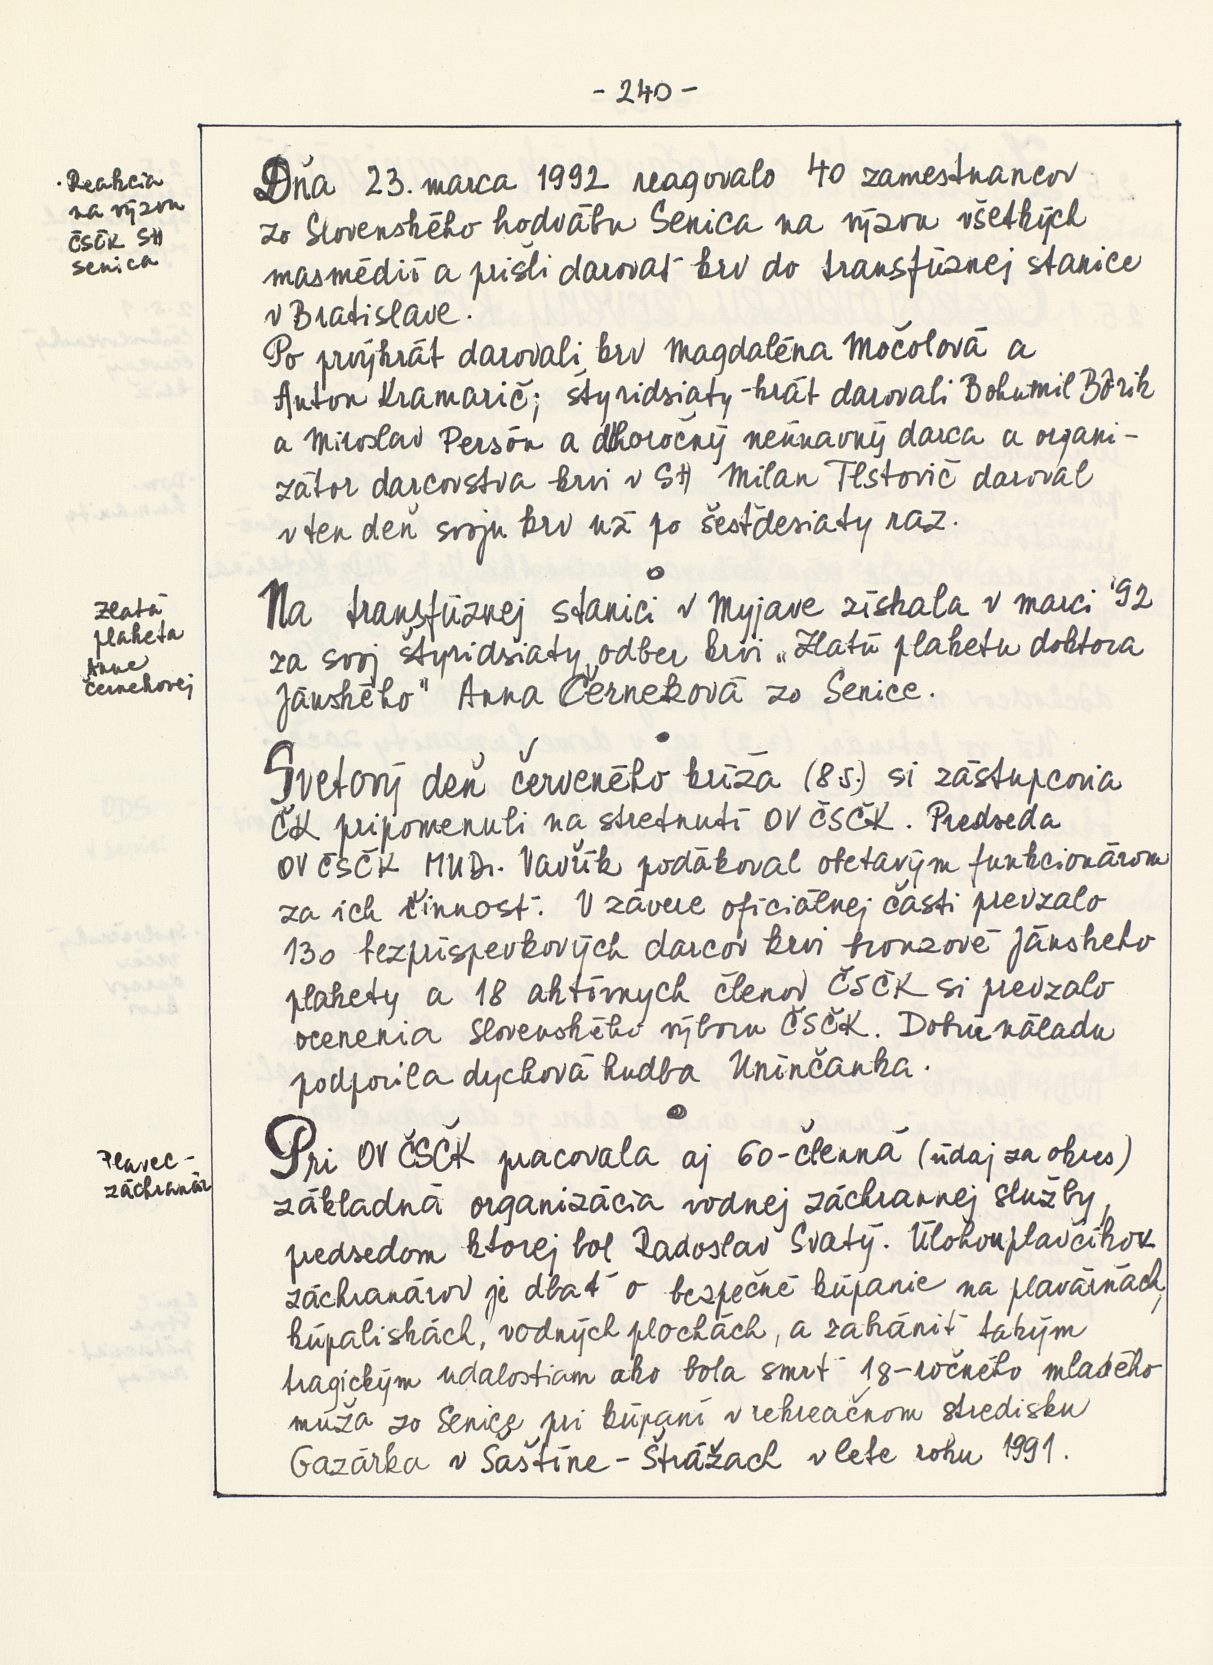 - 240 -
· Reakcia
na výzvu
ČSČK SH
Senica
Dňa 23. marca 1992 reagovalo 40 zamestnancov
zo Slovenského hodvábu Senica na výzvu všetkých
masmédií a prišli darovať krv do transfúznej stanice
v Bratislave.
Po prvýkrát darovali krv Magdaléna Močolová a
Anton Kramarič; štyridsiaty-krát darovali Bohumil Bôrik
a Miroslav Persón a dlhoročný neúnavný darca a organi-
zátor darcovstva krvi v SH Milan Tlstovič daroval
v ten deň svoju krv už po šesťdesiaty raz.
Zlatá
plaketa
Anne
Černekovej
Na transfúznej stanici v Myjave získala v marci '92
za svoj štyridsiaty odber krvi „Zlatú plaketu doktora
Jánského" Anna Černeková zo Senice.
Svetový deň červeného kríža (8.5.) si zástupcovia
ČK pripomenuli na stretnutí OV ČSČK. Predseda
OV ČSČK MUDr. Vavřík poďakoval obetavým funkcionárom
za ich činnosť. V závere oficiálnej časti prevzalo
130 bezpríspevkových darcov krvi bronzové Jánskeho
plakety a 18 aktívnych členov ČSČK si prevzalo
ocenenia Slovenského výboru ČSČK. Dobrú náladu
podporila dychová hudba Unínčanka.
Plavec-
záchranár
Pri OV ČSČK pracovala aj 60-členná (údaj za okres)
základná organizácia vodnej záchrannej služby,
predsedom ktorej bol Radoslav Svatý. Úlohou plavčíkov
záchranárov je dbať o bezpečné kúpanie na plavárňach,
kúpaliskách, vodných plochách, a zabrániť takým
tragickým udalostiam ako bola smrť 18-ročného mladého
muža zo Senice pri kúpaní v rekreačnom stredisku
Gazárka v Šaštíne-Strážach v lete roku 1991.